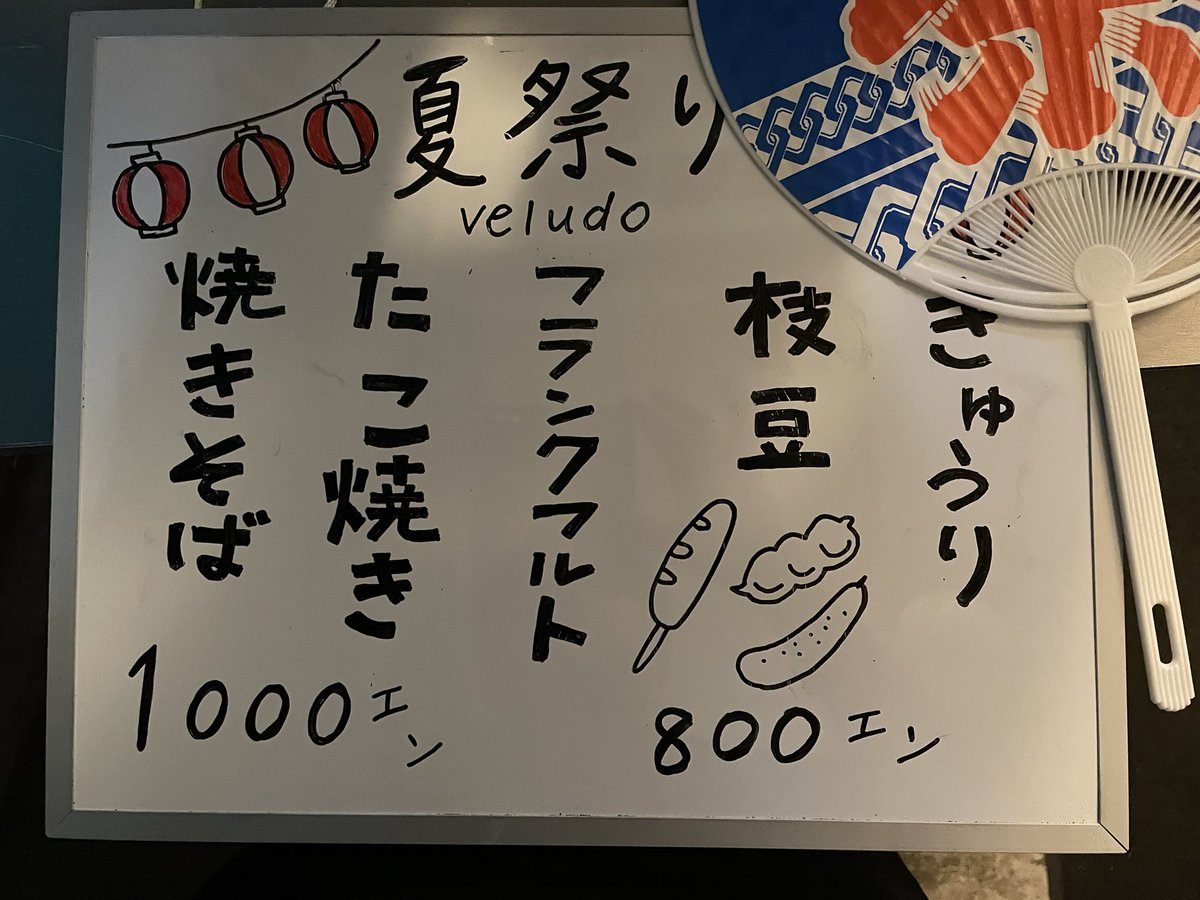 夏祭り
veludo
きゅうり
枝豆
フランクフルト
たこ焼き
焼きそば
1000エン
800エン